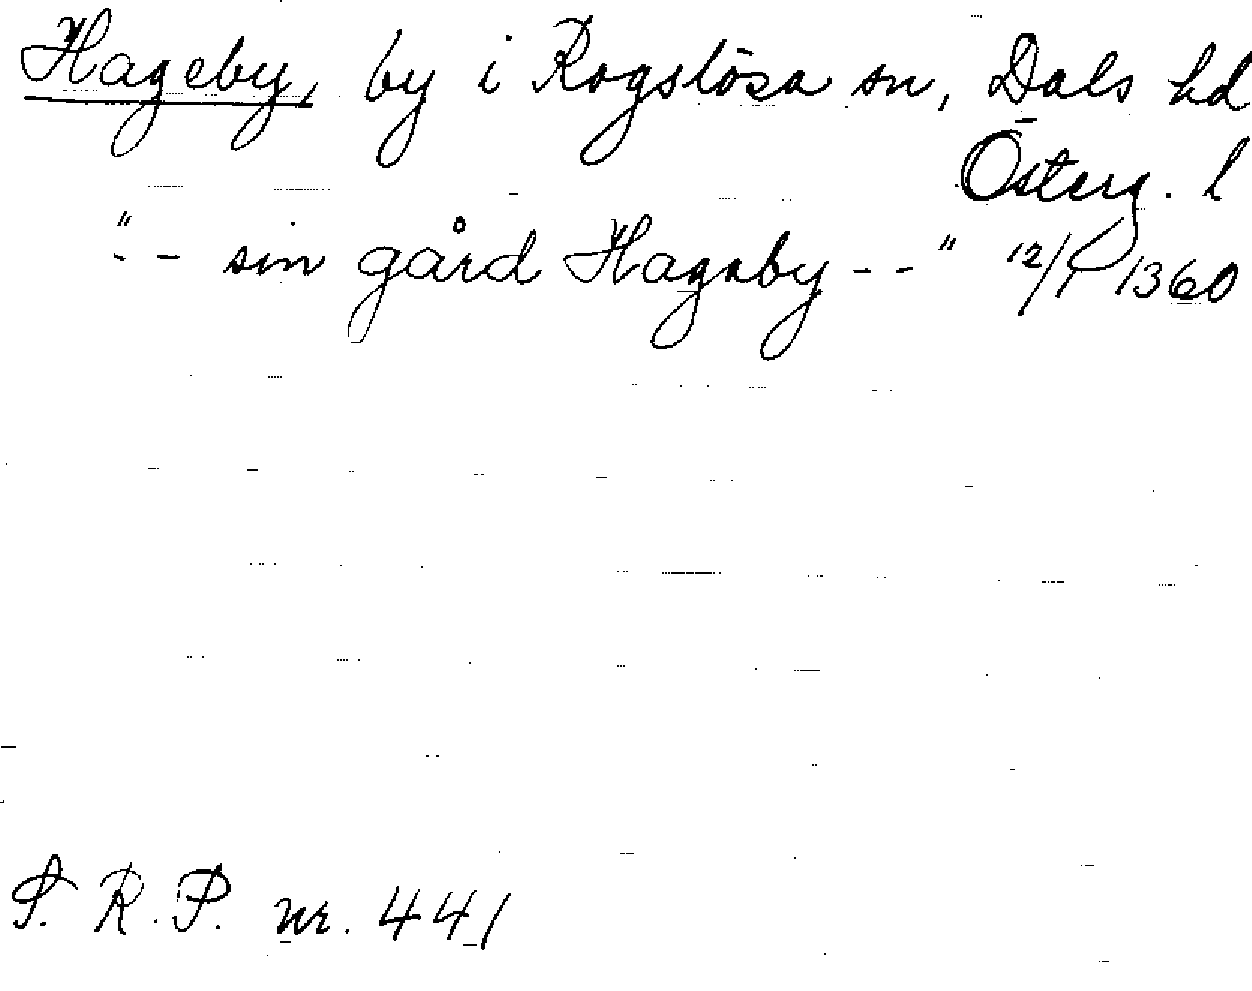 Hageby, by i Rogslösa sn, Dals hd
Österg. l
"- - sin gård Hagaby - -" 12/1 1360
S. R. P. nr. 441